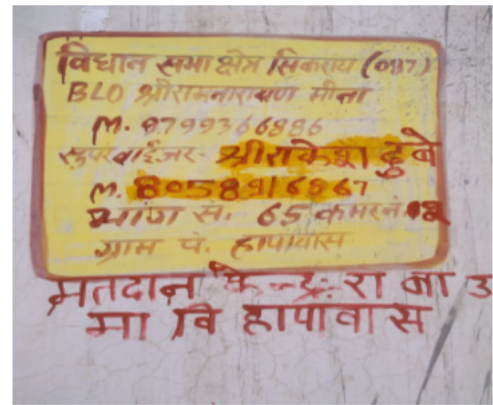 विधान सभा क्षेत्र सिकराय (087)
BLO श्रीरामनारायण मीना
M. 9799366886
सुपरवाईजर श्रीराकेश दुबे
M. 8058916867
भाग सं. 65 कमरा नं.
ग्राम पं. हापावास
मतदान केन्द्र रा बा उ
मा वि हापावास